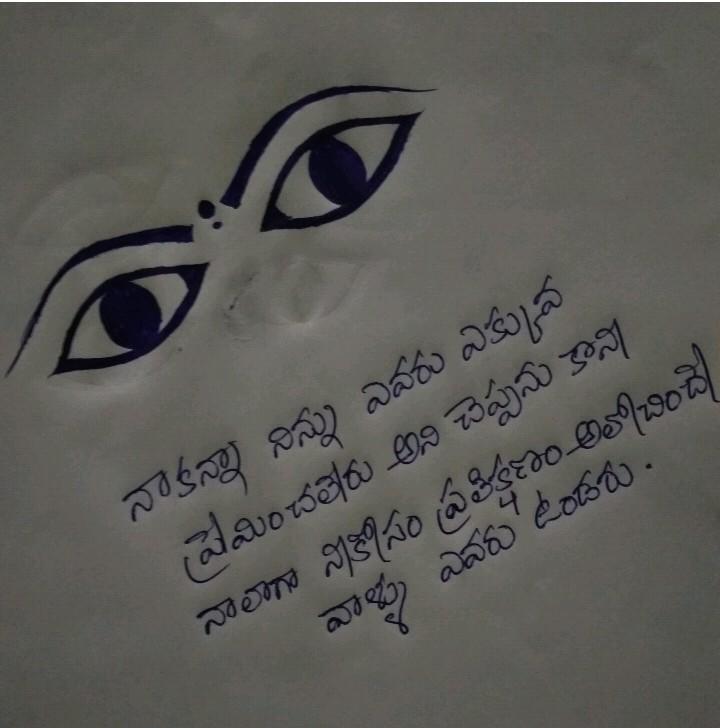 నాకన్నా నిన్ను ఎవరు ఎక్కువ
ప్రేమించలేరు అని చెప్పను కాని
నాలాగా నీకోసం ప్రతిక్షణం అలోచించే
వాళ్ళు ఎవరు ఉండరు.